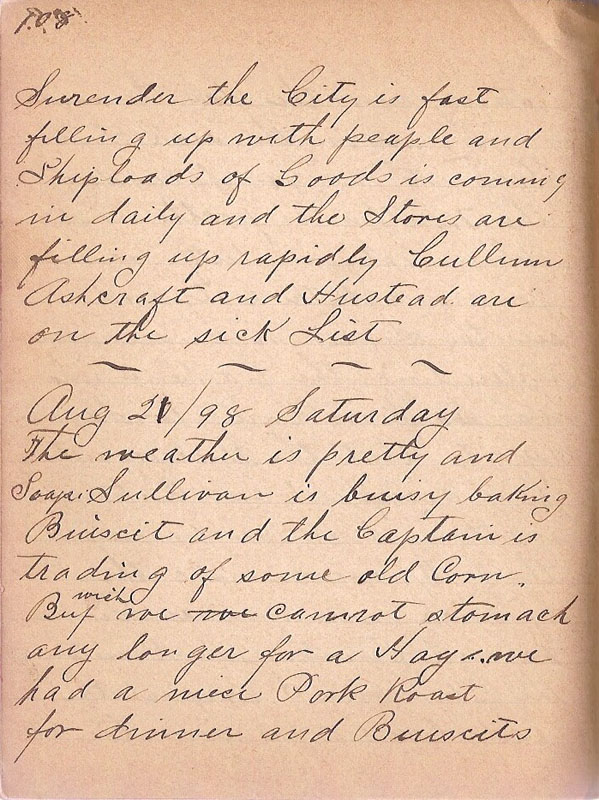 108
Surender the City is fast
filling up with peaple and
Shiploads of Goods is coming
in daily and the Stores are
filling up rapidly Cullum
Ashcraft and Hustead are
on the sick List
Aug 21/98 Saturday
The weather is pretty and
Soap: Sullivan is buisy baking
Buiscit and the Captain is
trading of some old Corn.
wich
Buf we we cannot stomach
any longer for a Hog. we
had a nice Pork Roast
for dinner and Buiscits